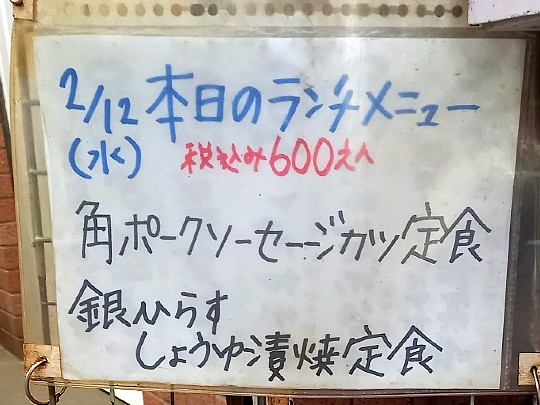 2/12 本日のランチメニュー
(水) 税込み600えん
角ポークソーセージカツ定食
銀ひらす
しょうゆ漬焼定食